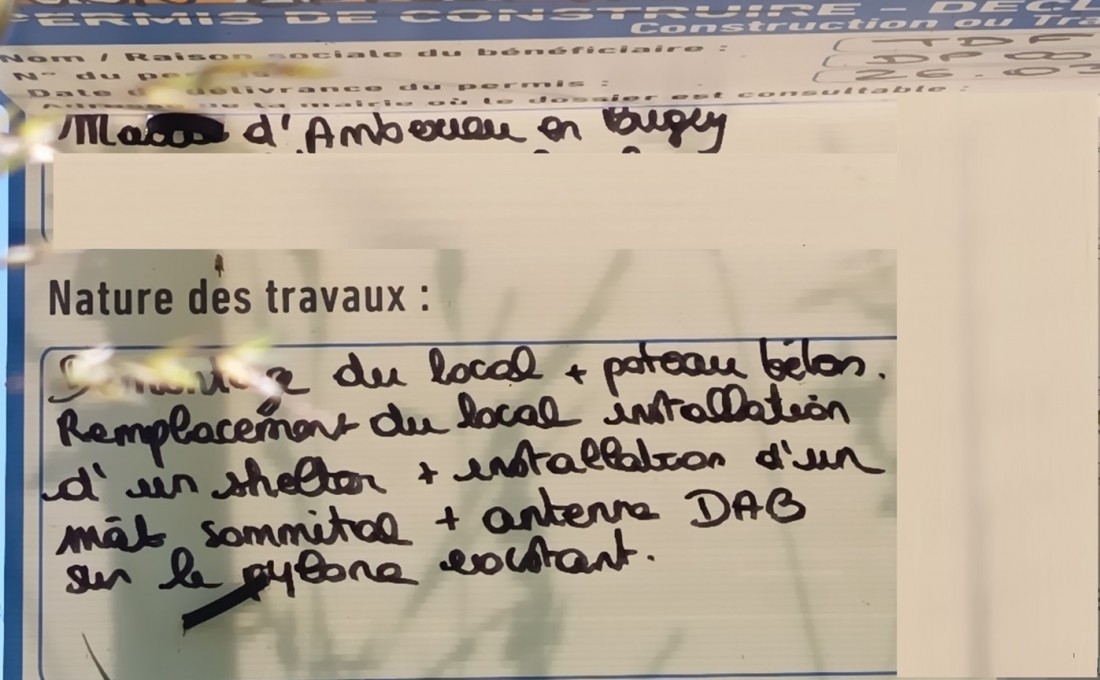 PERMIS DE CONSTRUIRE - DÉCL
Construction ou Tra
Nom / Raison sociale du bénéficiaire : TDF
N° du DP
Date délivrance du permis : 26.03
la mairie où le dossier est consultable :
d'Amberieu en Bugey
Nature des travaux :
du local + poteau béton.
Remplacement du local installation
d'un shelter + installation d'un
mât sommital + antenne DAB
sur le pylone existant.